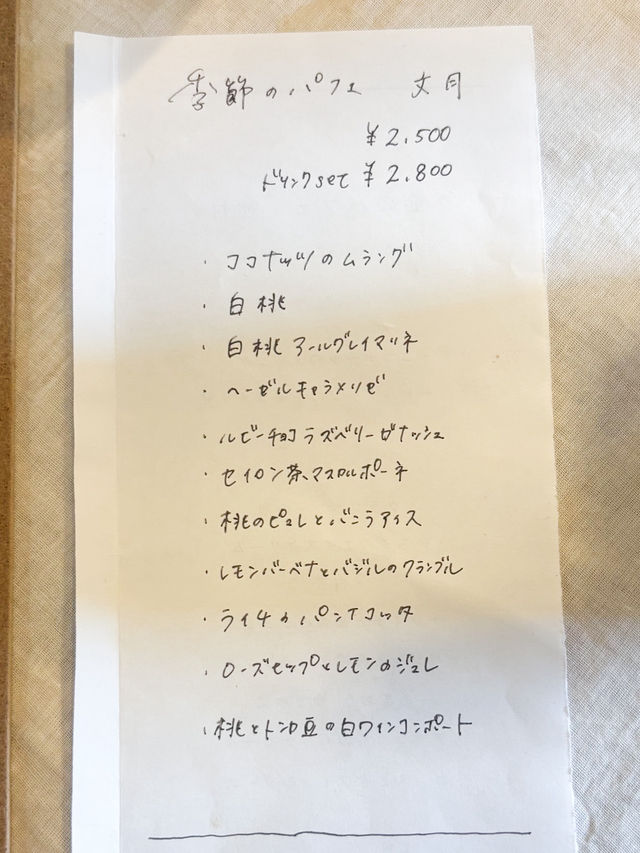 季節のパフェ 文月
¥2,500
ドリンクset ¥2,800
・ココナッツのムラング
・白桃
・白桃 アールグレイマリネ
・ヘーゼルキャラメリゼ
・ルビーチョコラズベリーガナッシュ
・セイロン茶、マスカルポーネ
・桃のピュレとバニラアイス
・レモンバーベナとバジルのクランブル
・ライチのパンナコッタ
・ローズヒップとレモンのジュレ
・桃とトンカ豆の白ワインコンポート